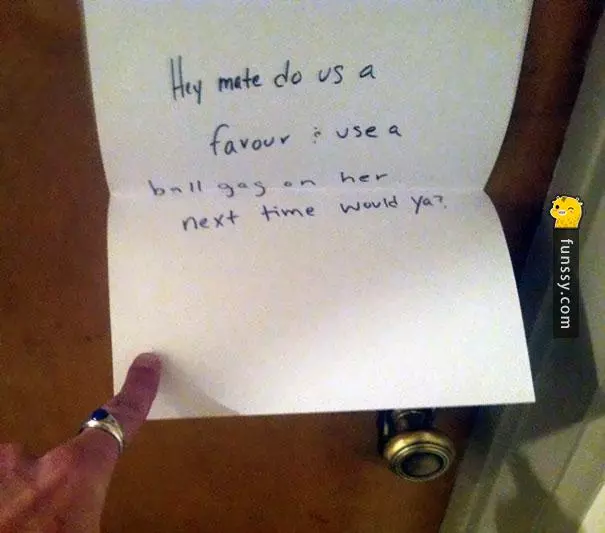 Hey mate do us a
favour & use a
ball gag on her
next time would ya?
funssy.com